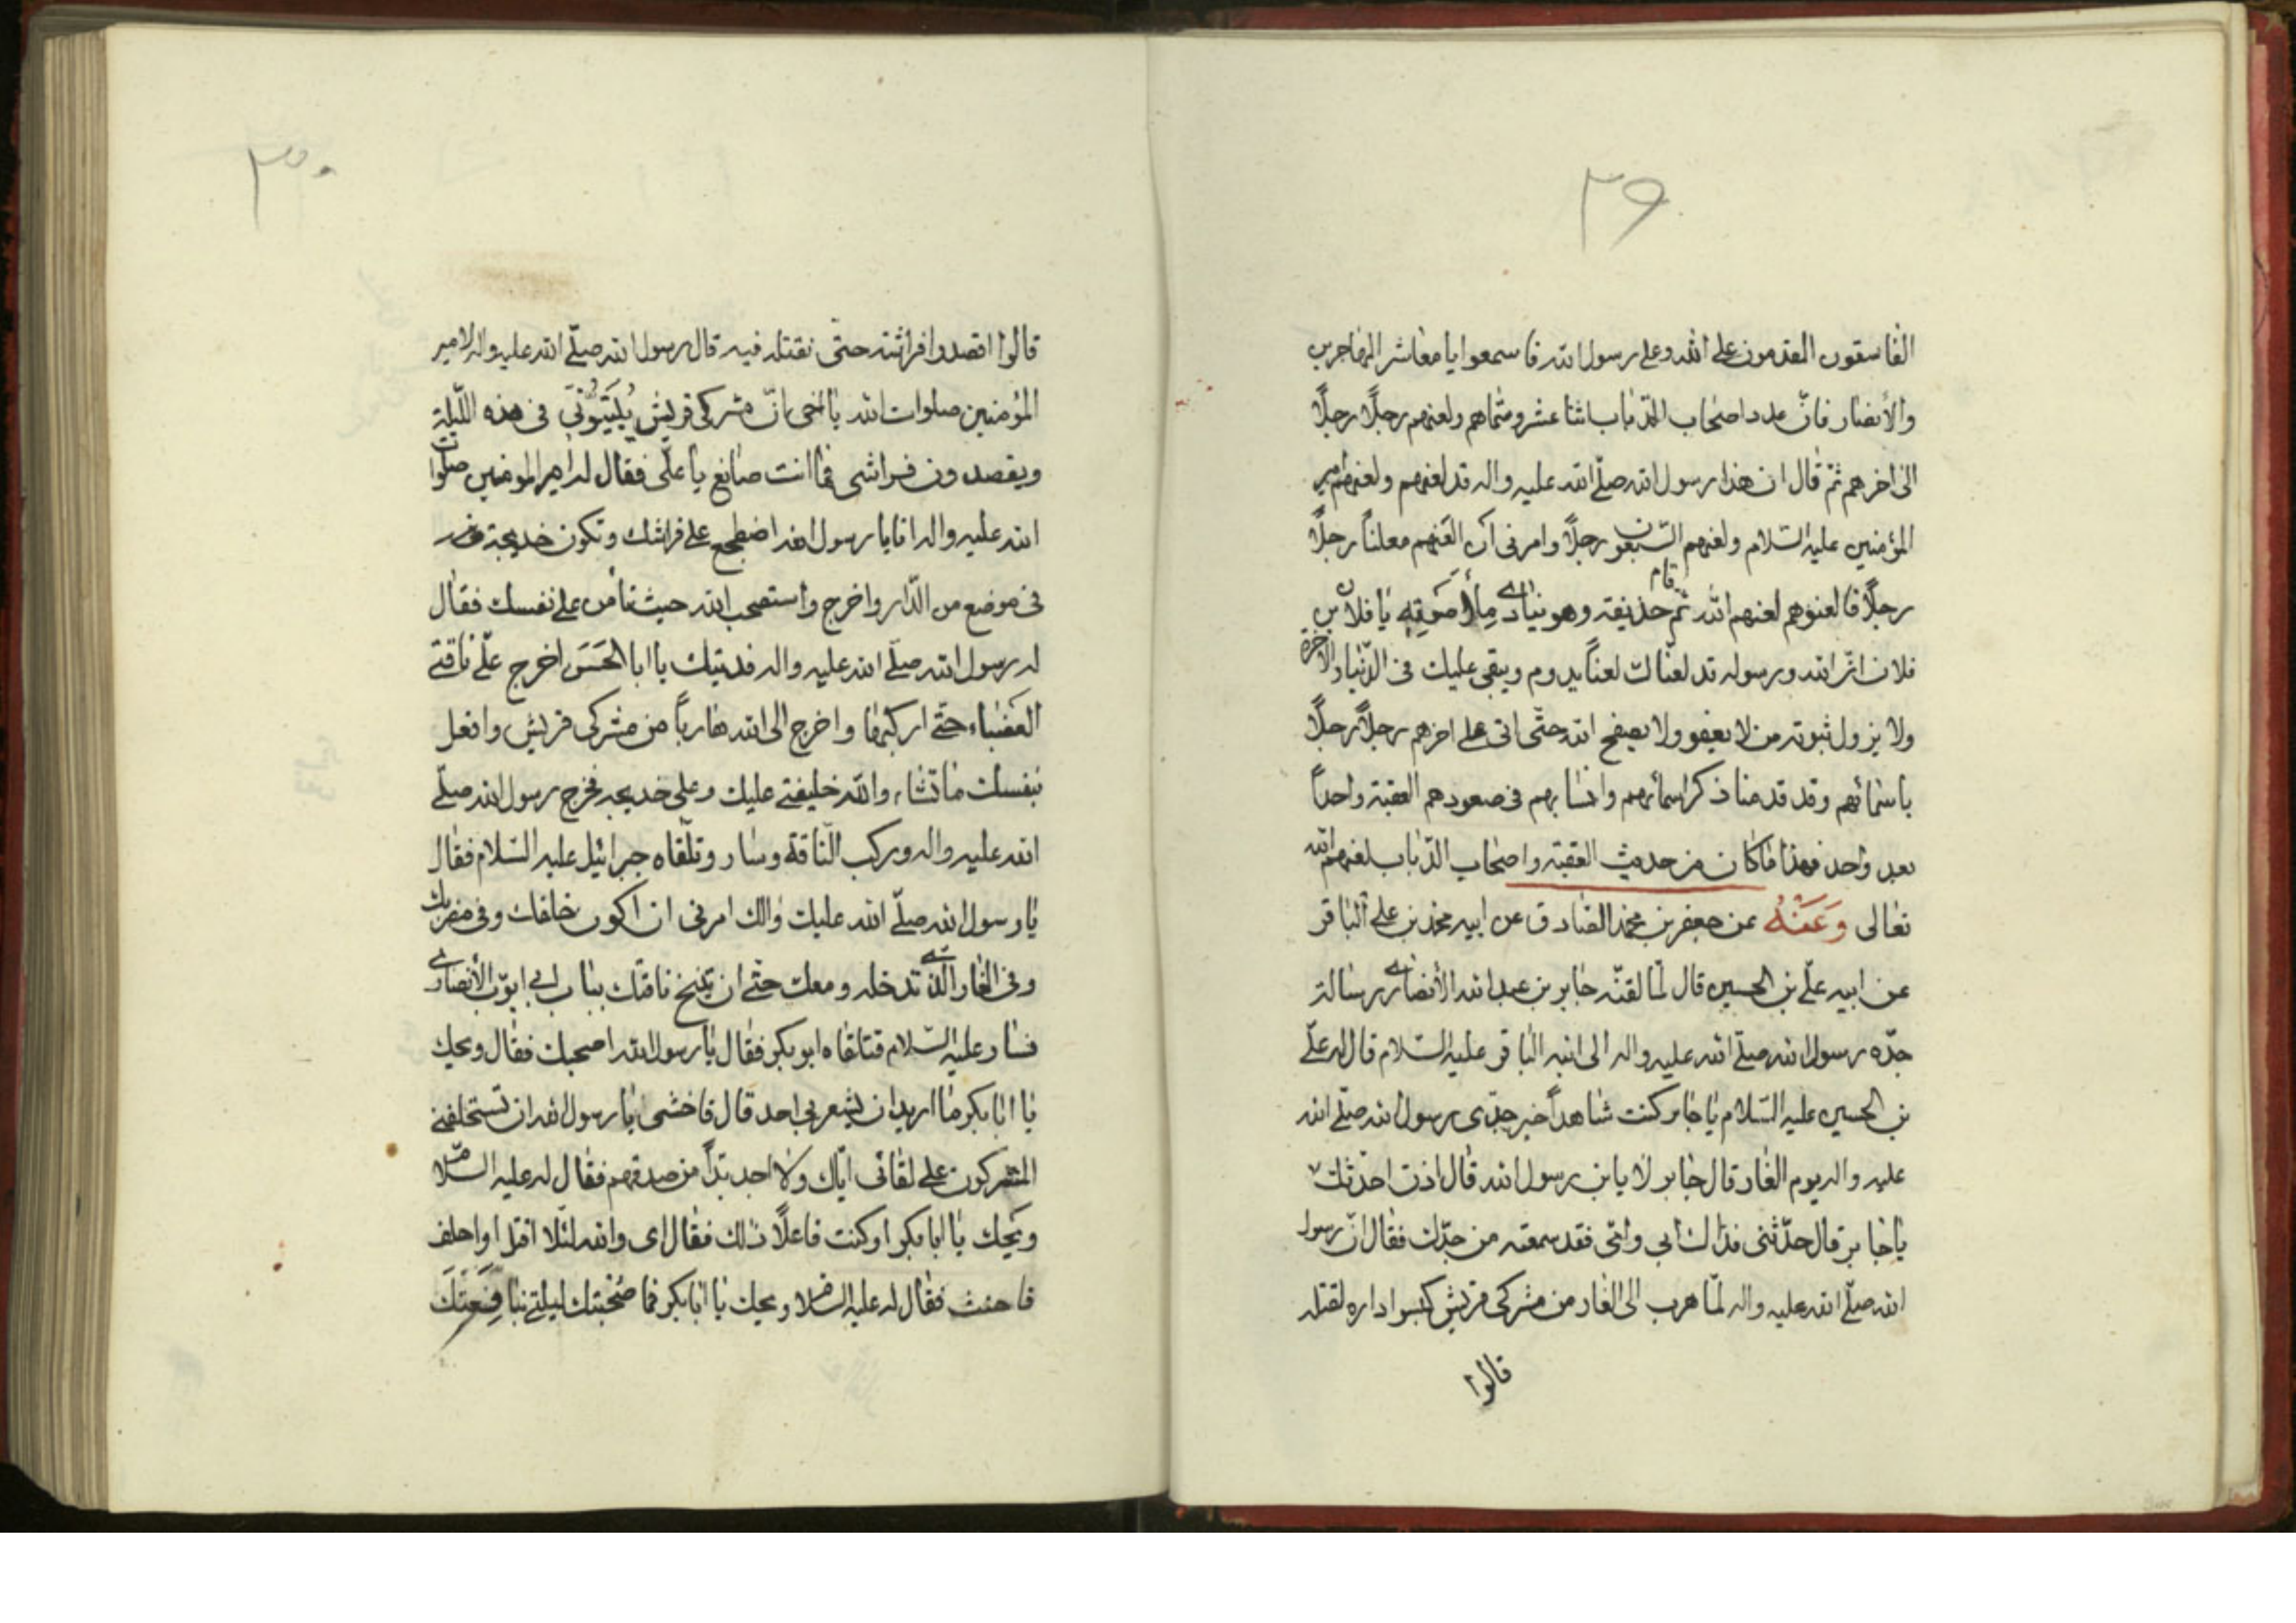 ٢٩
الفاسقون المقدمون على الله وعلى رسول الله فاسمعوا يا معاشر المهاجرين
والأنصار فانّ عدد اصحاب الدباب اثنا عشر وسماهم ولعنهم رجلًا رجلًا
الى اخرهم ثمّ قال ان هذا رسول الله صلّى الله عليه واله قد لعنهم ولعنهم امير
المؤمنين عليه السّلام ولعنهم السّبعون رجلًا وامرنى ان العنهم معلناً رجلًا
رجلًا فالعنوهم لعنهم الله ثم قام حذيفه وهو ينادى ملأ صوته يا فلان بن
فلان انّ الله ورسوله قد لعناك لعناً يدوم ويبقى عليك فى الدّنيا والاخرة
ولا يزول ثبوته من لا يعفو ولا يصفح الله حتّى اتى على اخرهم رجلًا رجلًا
باسمائهم وقد قدمنا ذكر اسمائهم وانسابهم فى صعودهم العقبة واحداً
بعد واحد فهذا ما كان من حديث العقبة واصحاب الدّباب لعنهم الله
تعالى وَعَنْهُ عن جعفر بن محمد الصّادق عن ابيه محمد بن على الباقر
عن ابيه علّى بن الحسين قال لمّا لقنّه جابر بن عبد الله الأنصارى برسالة
جدّه رسول الله صلّى الله عليه واله الى ابنه الباقر عليه السّلام قال له علّى
بن الحسين عليه السّلام يا جابر كنت شاهداً خبر جدّى رسول الله صلّى الله
عليه واله يوم الغار قال جابر لا يا بن رسول الله قال اذن احدّثك
يا جابر قال حدّثنى فداك ابى وامّى فقد سمعته من جدّك فقال انّ رسول
الله صلّى الله عليه واله لمّا هرب الى الغار من مشركى قريش كبسوا داره لقتله
قالوا
٣٠
قالوا اقصدوا فراشه حتّى نقتله فيه قال رسول الله صلّى الله عليه واله لامير
المؤمنين صلوات الله يا اخى انّ مشركى قريش يُبَيّتُونَى فى هذه اللّيلة
ويقصدون فراشى فما انت صانع يا علّى فقال له امير المومنين صلوات
الله عليه واله انا يا رسول الله اضطجع على فراشك وتكون خديجة
فى موضع من الدّار واخرج واستصحب الله حيث تأمن على نفسك فقال
له رسول الله صلّى الله عليه واله فديتك يا ابا الحَسَن اخرج علّى ناقتى
العضباء حتّى اركبها واخرج الى الله هارباً من مشركى قريش وافعل
بنفسك ما تشاء والله خليفتى عليك وعلى خديجه فخرج رسول الله صلّى
الله عليه واله وركب النّاقة وسار وتلّقاه جبرائيل عليه السّلام فقال
يا رسول الله صلّى الله عليك والك امرنى ان اكون خلفك وفى مضربك
وفى الغار الّذى تدخله ومعك حتّى ان تنيخ ناقتك بباب ابى ايوّب الأنصارى
فسار عليه السّلام فتلقاه ابو بكر فقال يا رسول الله اصحبك فقال ويحك
يا ابابكر ما اريد ان يشعر بى احد قال فاخشى يا رسول الله ان تستحلفنى
المشركون على لقائى ايّاك ولا اجد بدّاً من صدقهم فقال له عليه السّلام
ويَحك يا ابا بكر او كنت فاعلًا ذلك فقال اى والله لئلّا اقتل او احلف
فاحنث فقال له عليه السّلام ويحك يا ابابكر فما صُحبتك ليلتى بنافِعَتَكَ